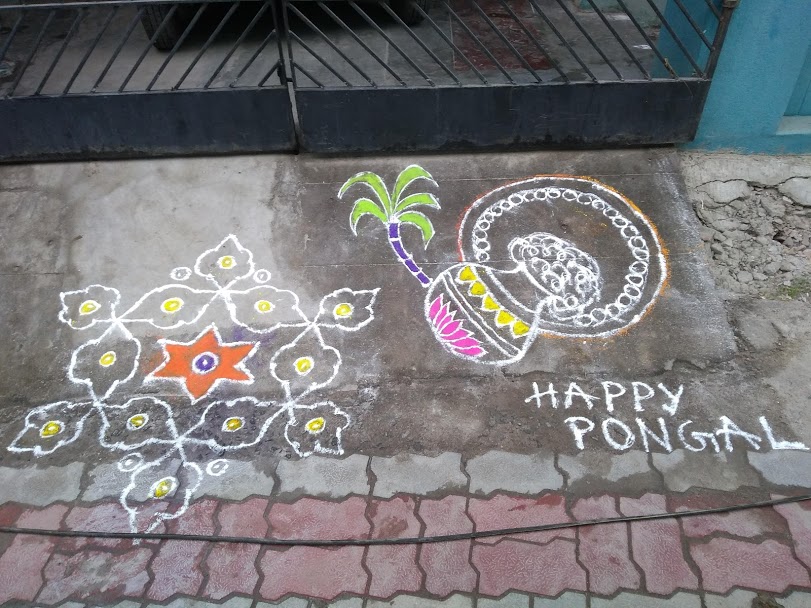 HAPPY
PONGAL